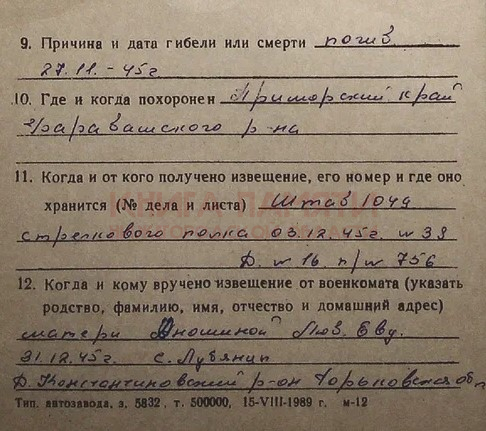 9. Причина и дата гибели или смерти погиб
27.11.-45г
10. Где и когда похоронен Приморский край
р-на
11. Когда и от кого получено извещение, его номер и где оно
КНИГА ПАМЯТИ
хранится (№ дела и листа) Штаб 1049
стрелкового полка 03.12.45г. № 39
Д. № 16. п/№ 756
12. Когда и кому вручено извещение от военкомата (указать
родство, фамилию, имя, отчество и домашний адрес)
матери Аношиной Люб. Евд.
31.12.45г. с.
Д. Константиновский р-он Горьковская об
Тип. автозавода, з. 5832, т. 500000, 15-VIII-1989 г. м-12